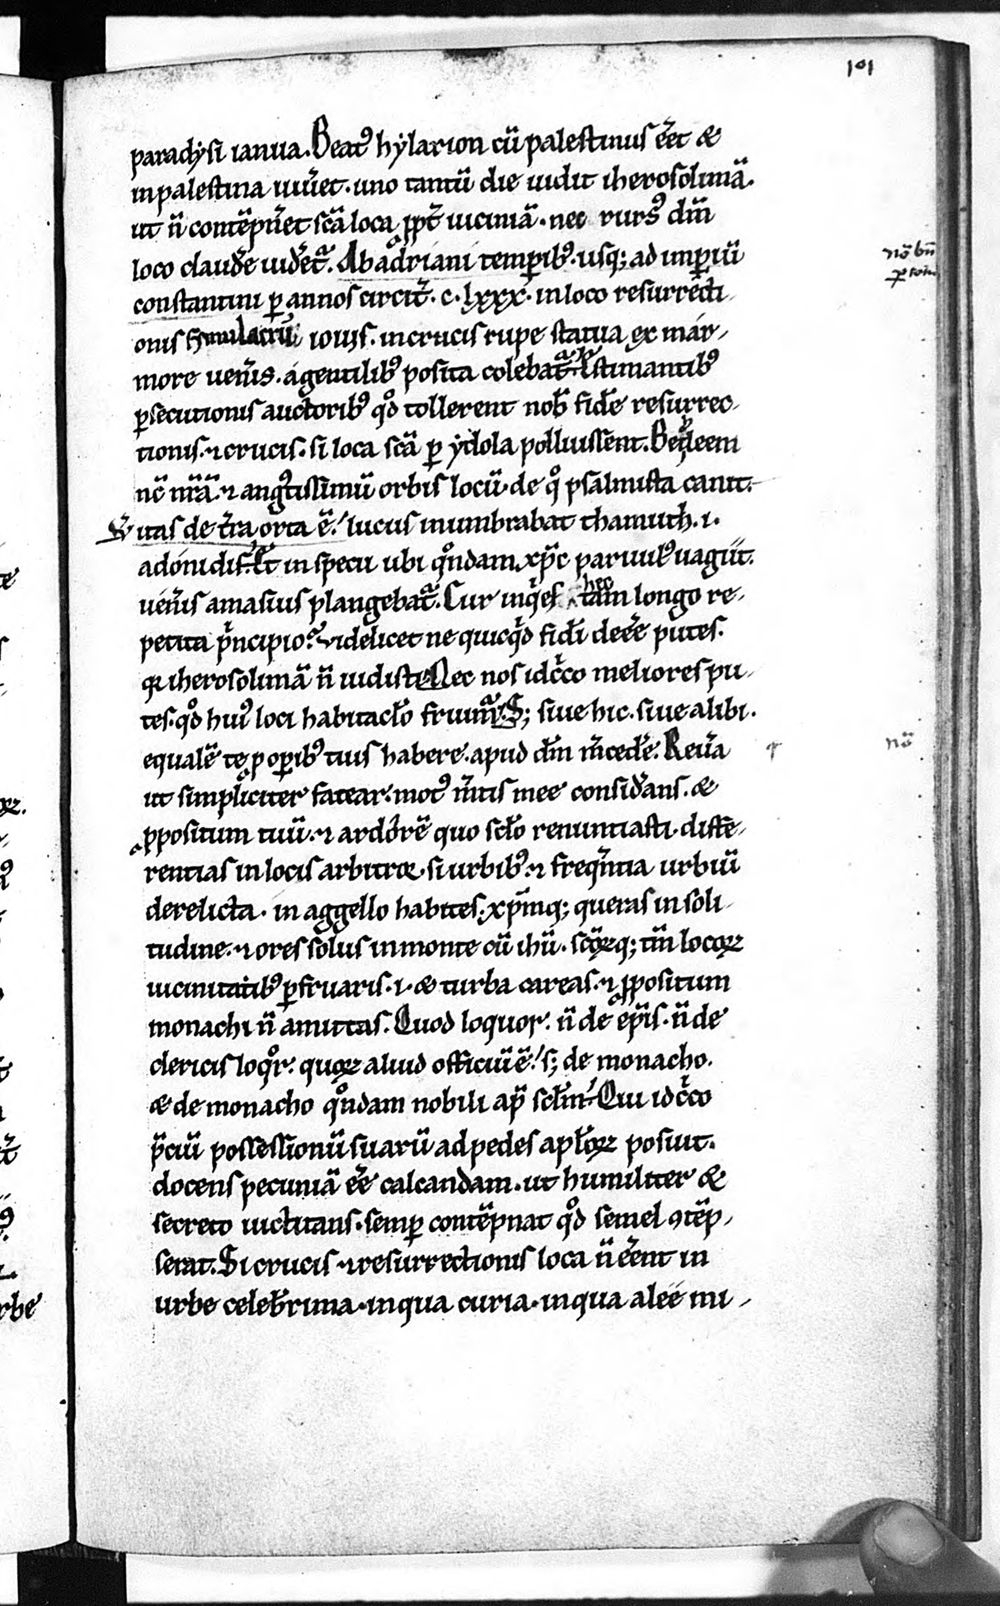 101
paradysi ianua. Beatꝰ hylarion cū palestinus eēt &
inpalestina uiūet. uno tantū die uidit iherosolimā.
ut ñ contēpñet scā loca ꝓpt̄ uiciniā. nec rursꝰ dm̄
loco claud̄e uidet̄. Ab adriani temꝑibꝰ. usqꝫ ad imꝑiū
constantini ꝑ annos circit̄. c. lxxx. inloco resurrecti
onis simulacrū iouis. incrucis rupe statua ex mar
more uen̄is. agentilibꝰ posita colebat̄. Estimantibꝰ
ꝑsecutionis auctoribꝰ qd̄ tollerent nob̄ fid̄e resurrec
tionis. ⁊ crucis. si loca scā ꝑ ydola polluissent. Bethleem
nc̄ nr̄ā. ⁊ angꝰtissimū orbis locū. de qͦ psalmista canit.
Ūitas de t̄ra orta ē. lucus inumbrabat thamuth. i.
adonidis. Et in specu ubi qͦndam xp̄c paruulꝰ uagiit.
uen̄is amasius plangebat̄. Cur inqͥes hec tam longo re
petita pͥncipio? videlicet ne quicqͥd fidi deēe putes.
qͥ iherosolimā ñ uidisti. Nec nos idcͥco meliores pu
tes. qd̄ huiꝰ loci habitaclo fruimͬ. Sꝫ siue hic. siue alibi.
equalē te ꝓ oꝑibꝰ tuis habere. apud dm̄ m̄ced̄e. Reū̄a
ut simpliciter fatear. motꝰ m̄tis mee consid̄ans. &
ꝓpositum tuū. ⁊ ardorē quo sclo renuntiasti. diffe
rentias in locis arbitror. si urbibꝰ. ⁊ freqn̄tia urbiū
derelicta. in aggello habites. xp̄mqꝫ queras in soli
tudine. ⁊ ores solus inmonte cū ihū. scōꝝqꝫ tm̄ locoꝝ
uicinitatibꝰ ꝑfruaris. i. & turba careas. ⁊ ꝓpositum
monachi ñ amittas. Quod loquor. ñ de ep̄is. ñ de
clericis loqͦr. quoꝝ aliud officiū ē. sꝫ de monacho.
& de monacho qͦndam nobili ap̄ sclm̄. Qui idcͥco
p̄ciū possessionū suarū ad pedes aplōꝝ posuit.
docens pecuniā eēe calcandam. ut humiliter &
secreto uictitans. semꝑ contēpnat qd̄ semel ꝯtēp
serat. Si crucis ⁊ resurrectionis loca ñ eēent in
urbe celeb̄rima. inqua curia. inqua alee mi